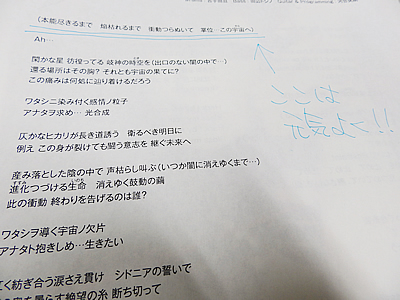 Guitar & Programming
（本能尽きるまで　焔枯れるまで　衝動つらぬいて　掌位　この宇宙へ）
Ah…
閑かな星　彷徨ってる　岐神の時空を（出口のない闇の中で…）
還る場所はその胸？ それとも宇宙の果てに？
この痛みは何処に辿り着けるだろう
ここは
元気よく!!
ワタシニ染み付く感情ノ粒子
アナタヲ求め… 光合成
仄かなヒカリが長き道誘う　衛るべき明日に
例え この身が裂けても闘う意志を 継ぐ未来へ
産み落とした陰の中で 声枯らし叫ぶ（いつか闇に消えゆくまで…）
進化つづける生命　消えゆく鼓動の繭
此の衝動 終わりを告げるのは誰？
ワタシヲ導く宇宙ノ欠片
アナタト抱きしめ… 生きたい
く紡ぎ合う涙さえ貫け　シドニアの誓いで
らす絶望の糸 断ち切って